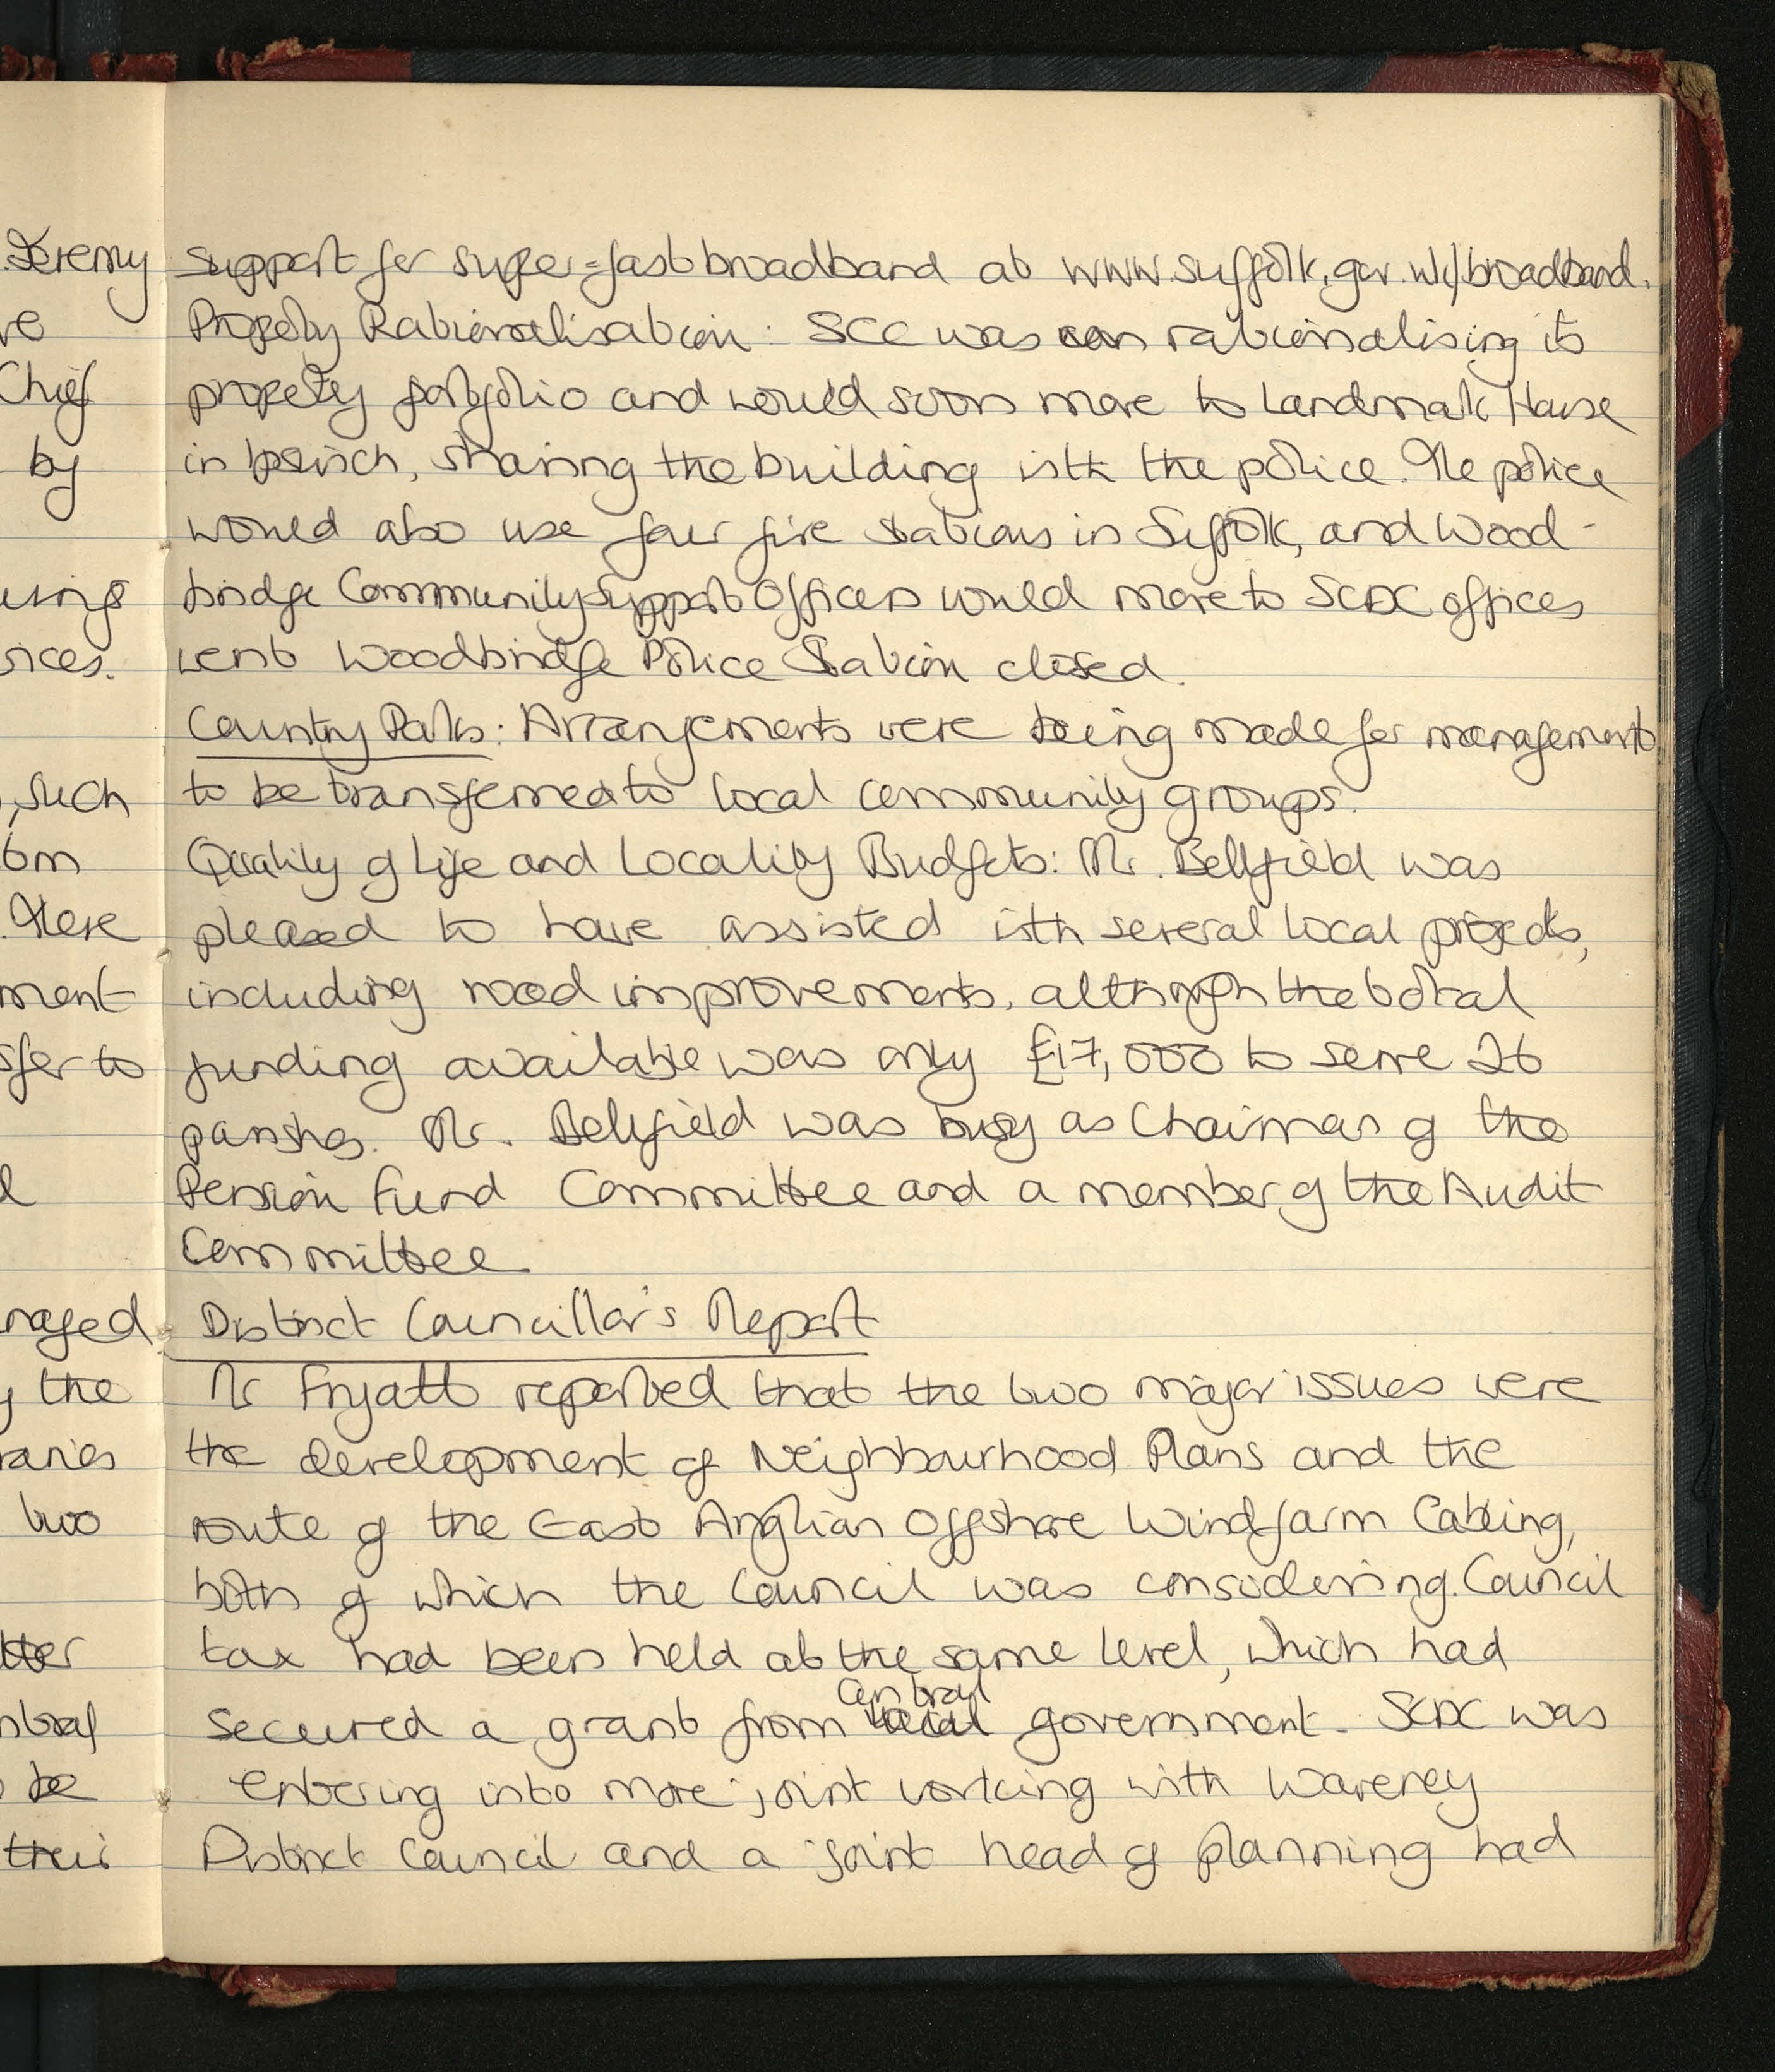 Jeremy
re
Chief
by
using
rices.
, such
6m
. There
ment
sfer to
naged
y the
raries
two
tter
ntral
be
their
support for super-fast broadband at www.suffolk.gov.uk/broadband.
Property Rationalisation: SCC was rationalising its
property portfolio and would soon move to Landmark House
in Ipswich, sharing the building with the police. The police
would also use four fire stations in Suffolk, and Wood-
bridge Community Support Officers would move to SCDC offices
went Woodbridge Police Station closed.
Country Parks: Arrangements were being made for management
to be transferred to local community groups.
Quality of Life and Locality Budgets: Mr. Bellfield was
pleased to have assisted with several local projects,
including road improvements, although the total
funding available was only £17,000 to serve 26
parishes. Mr. Bellfield was busy as Chairman of the
Pension Fund Committee and a member of the Audit
Committee
District Councillor's Report
Mr Fryatt reported that the two major issues were
the development of Neighbourhood Plans and the
route of the East Anglian Offshore Windfarm Cabling,
both of which the Council was considering. Council
tax had been held at the same level, which had
central
secured a grant from local government. SCDC was
entering into more joint working with Waveney
District Council and a joint head of planning had